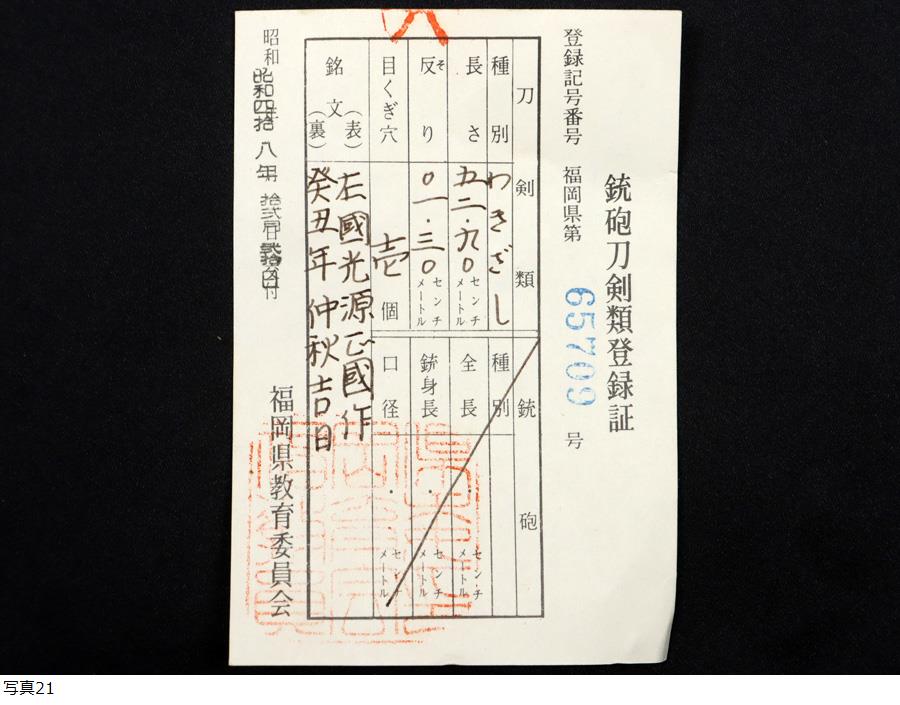 銃砲刀剣類登録証
登録記号番号 福岡県第 65709 号
刀剣類 銃砲
種別 わきざし 種別
長さ 五二.九〇 センチメートル 全長 . センチメートル
反り そ 〇一.三〇 センチメートル 銃身長 . センチメートル
目くぎ穴 壱 個 口径 . センチメートル
銘文
(表) 左國光源正國作
(裏) 癸丑年仲秋吉日
昭和 昭和四拾八年
福岡県教育委員会
写真21